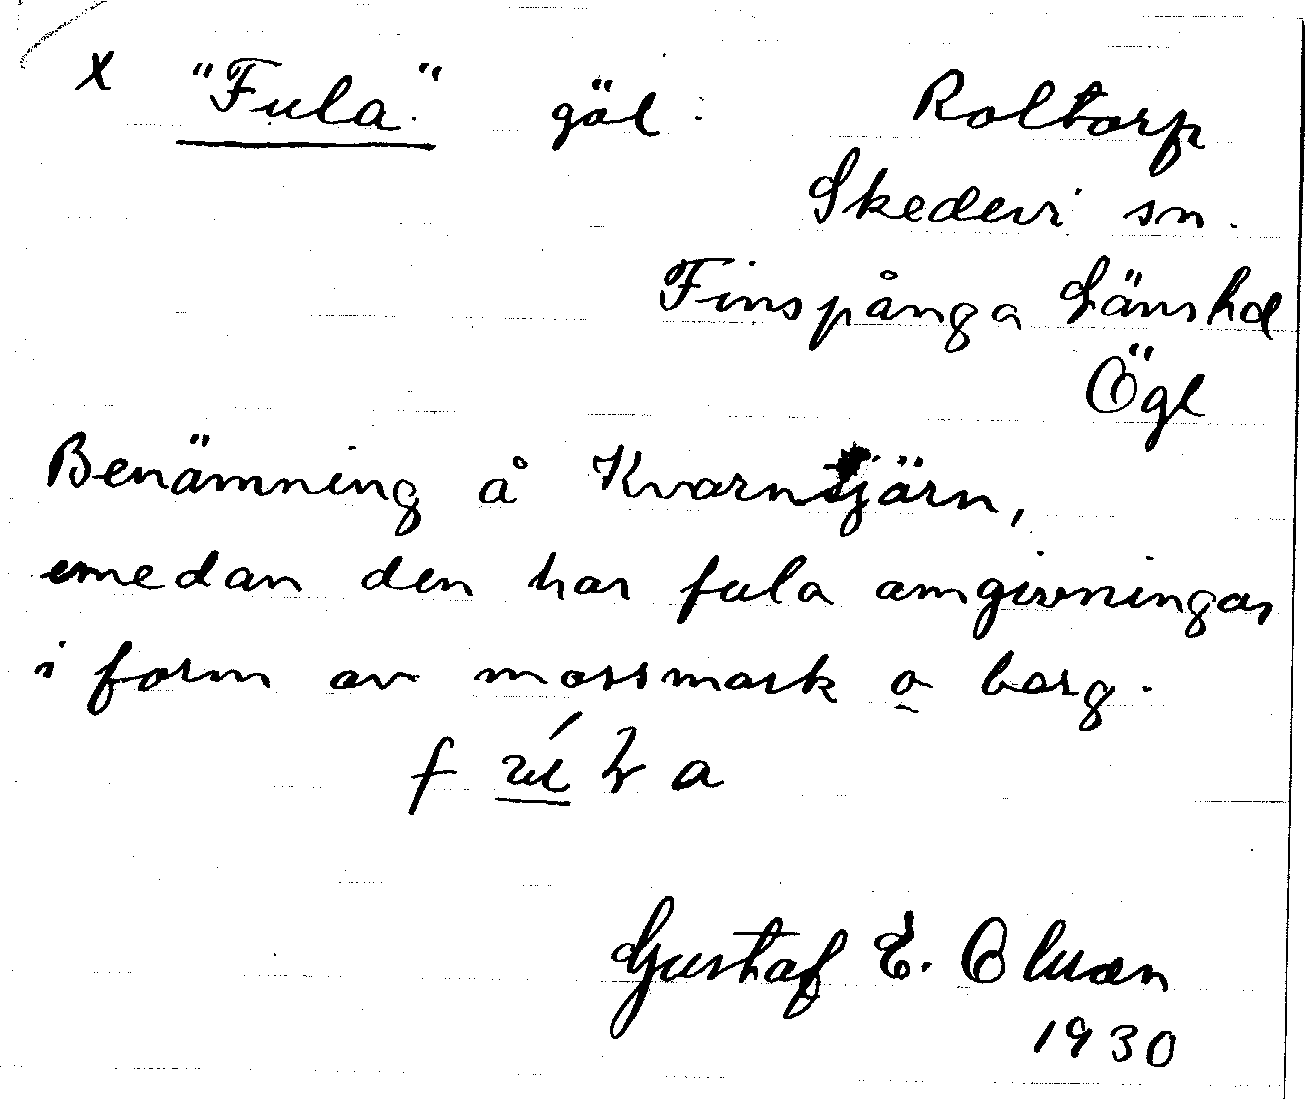 x "Fula" göl. Roltorp
Skedevi sn.
Finspånga Länshd
Ögl
Benämning å Kvarntjärn,
emedan den har fula omgivningar
i form av mossmark o berg.
Gustaf E. Olsson
1930